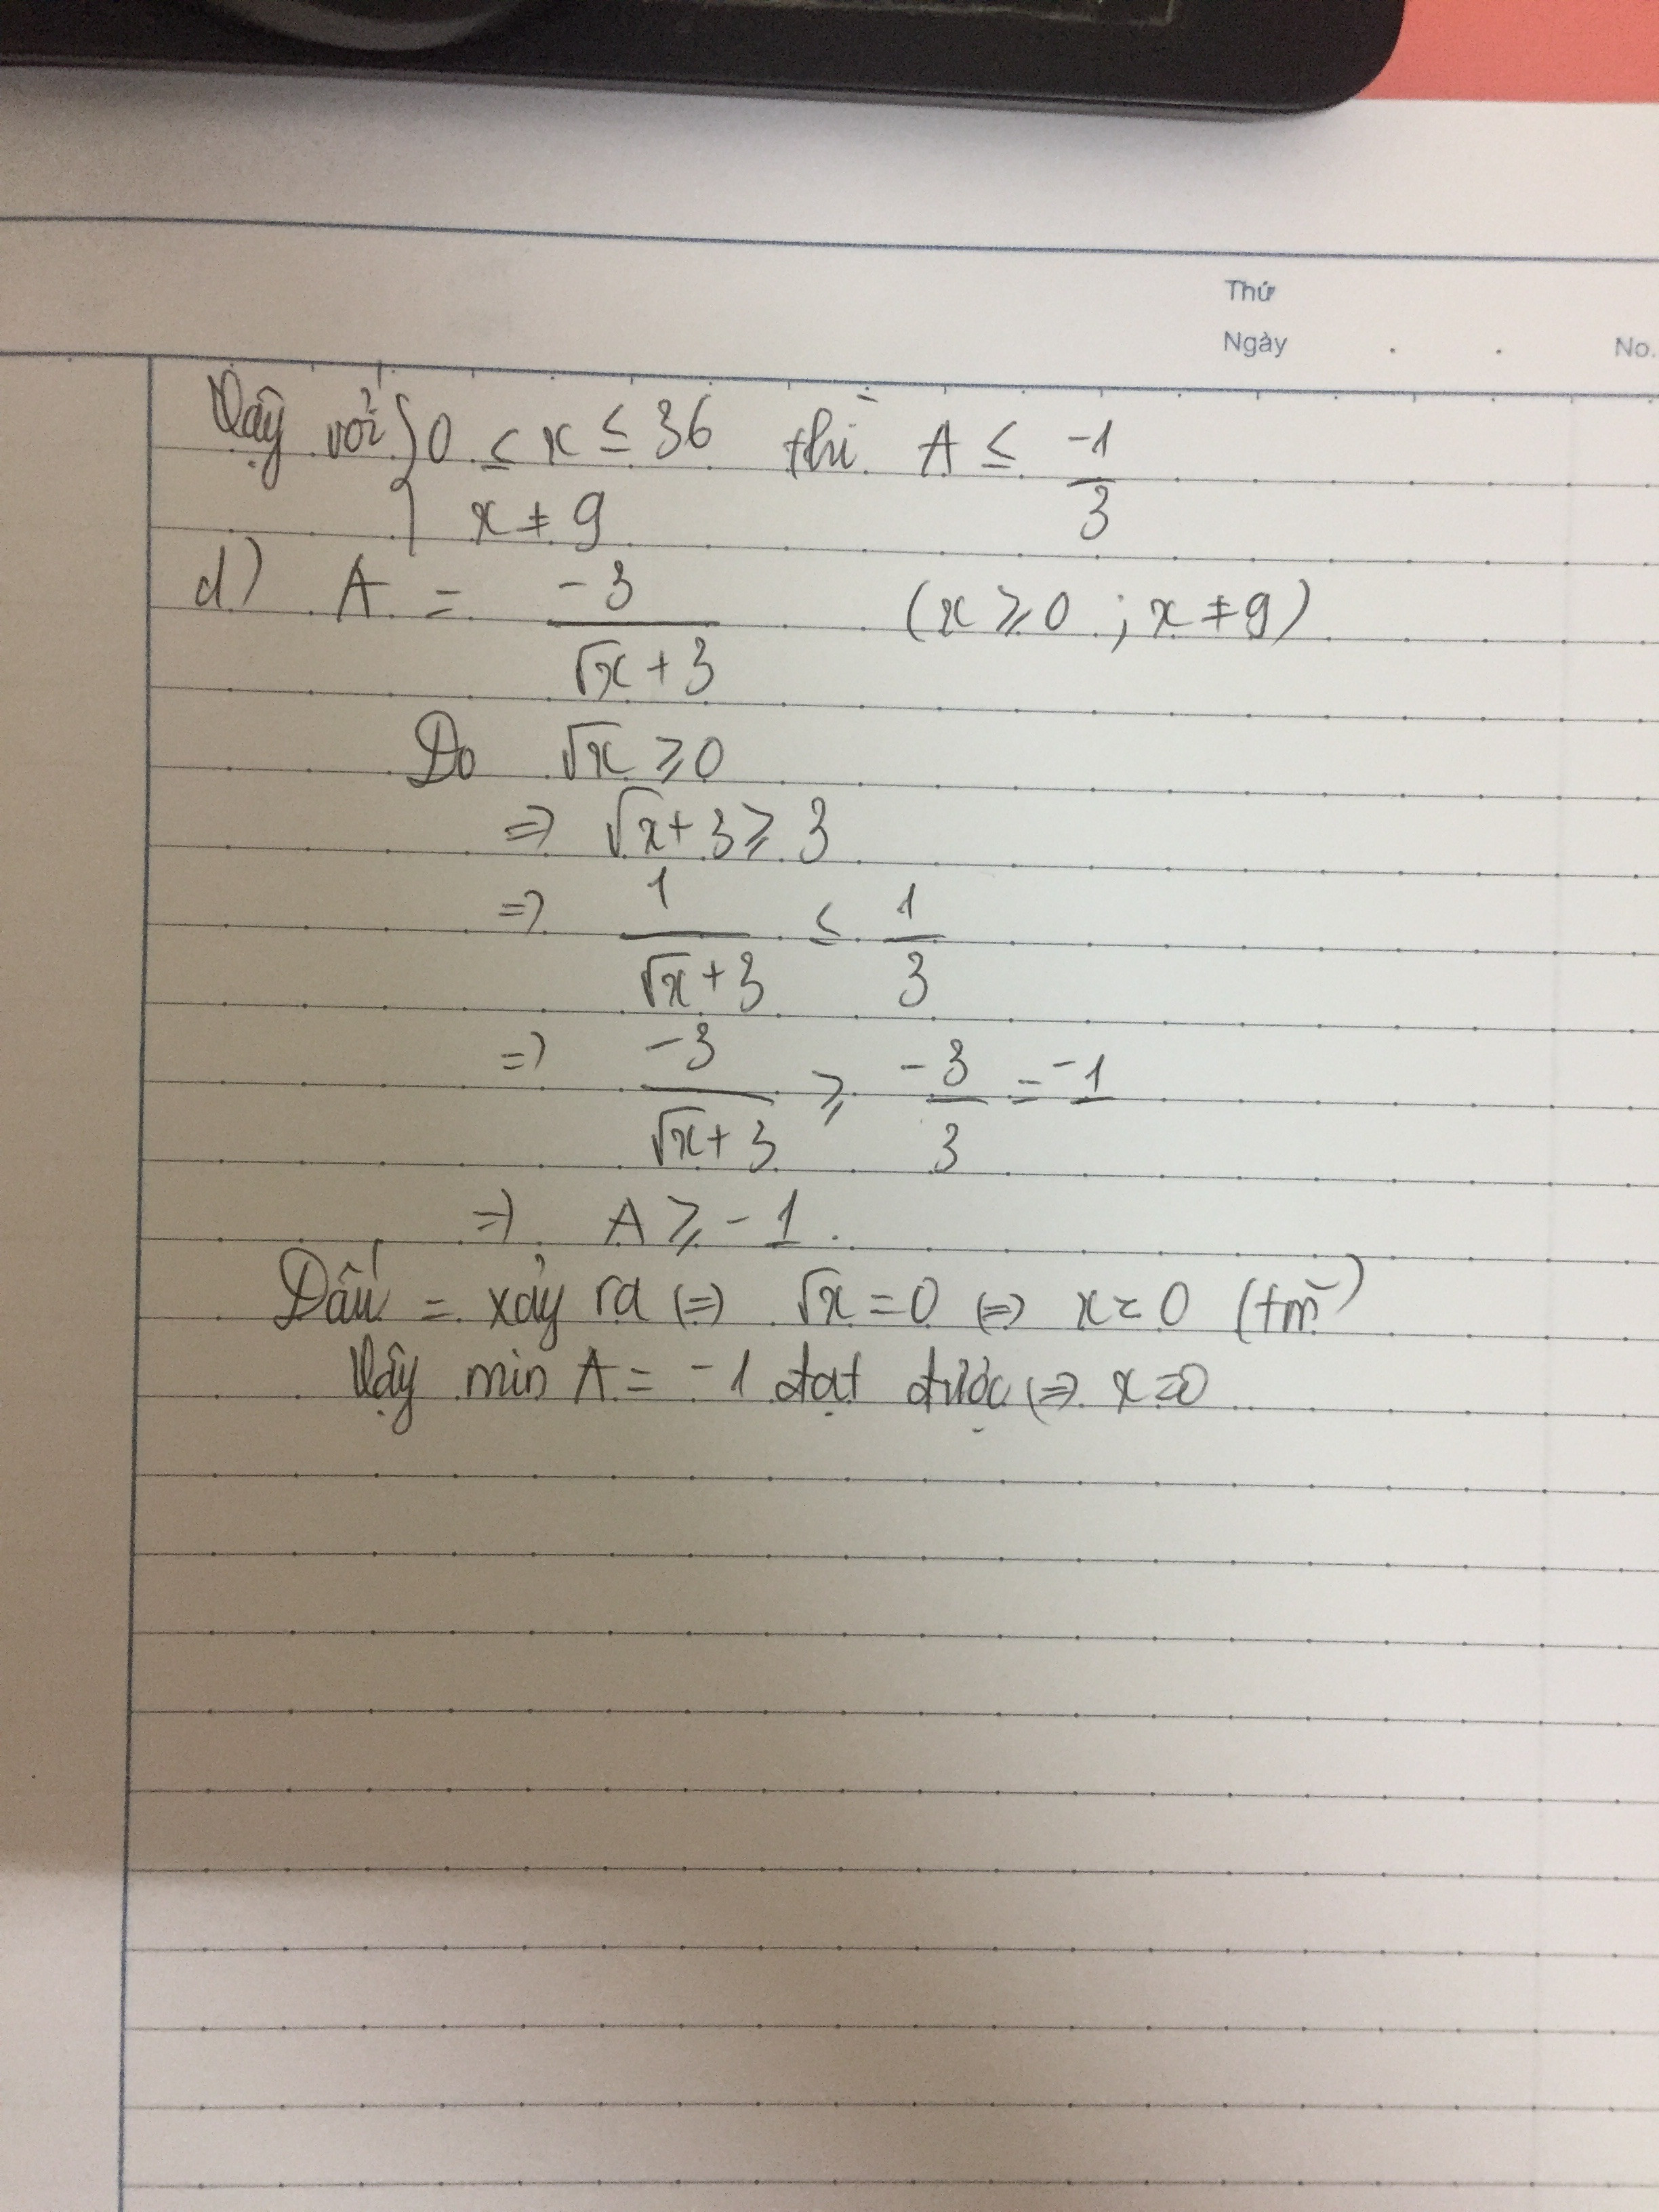 Thứ
Ngày . . No.
Vậy với { 0 ≤ x ≤ 36 thì A ≤ -1/3
x ≠ 9
d) A = -3/(√x + 3) (x ≥ 0 ; x ≠ 9)
Do √x ≥ 0
=> √x + 3 ≥ 3
=> 1/(√x + 3) ≤ 1/3
=> -3/(√x + 3) ≥ -3/3 = -1
=> A ≥ -1.
Dấu = xảy ra <=> √x = 0 <=> x = 0 (tm)
Vậy min A = -1 đạt được <=> x = 0